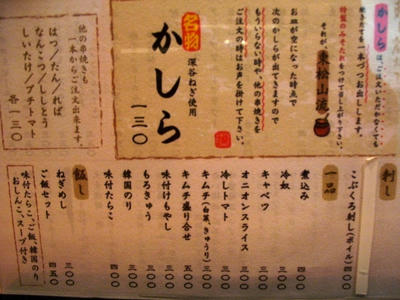 かしらは、ご注文いただかなくても
焼きたてを一本づつお出しします。
特製のみそだれをつけてお召し上がり下さい。
それが、東松山流
お皿が空になった時点で
次のかしらが出てきますので
もういらない時や、他の串焼きを
ご注文の時はお声を掛けて下さい。
名物
かしら
深谷ねぎ使用
一三〇
他の串焼きも
一本からご注文出来ます。
はつ／たん／ればー
なんこつ／ししとう
しいたけ／プチトマト
各一三〇
刺し
こぶくろ刺し(ボイル) 四〇〇
一品
煮込み 四〇〇
冷奴 三〇〇
キャベツ 三〇〇
オニオンスライス 三〇〇
冷しトマト 三〇〇
キムチ(白菜、きゅうり) 各三〇〇
キムチ盛り合せ 五〇〇
味付けもやし 三〇〇
もろきゅう 三〇〇
韓国のり 二〇〇
味付たらこ 四〇〇
飯し
ねぎめし 三〇〇
ご飯セット 四五〇
味付たらこ、ご飯、韓国のり
おしんこ、スープ付き